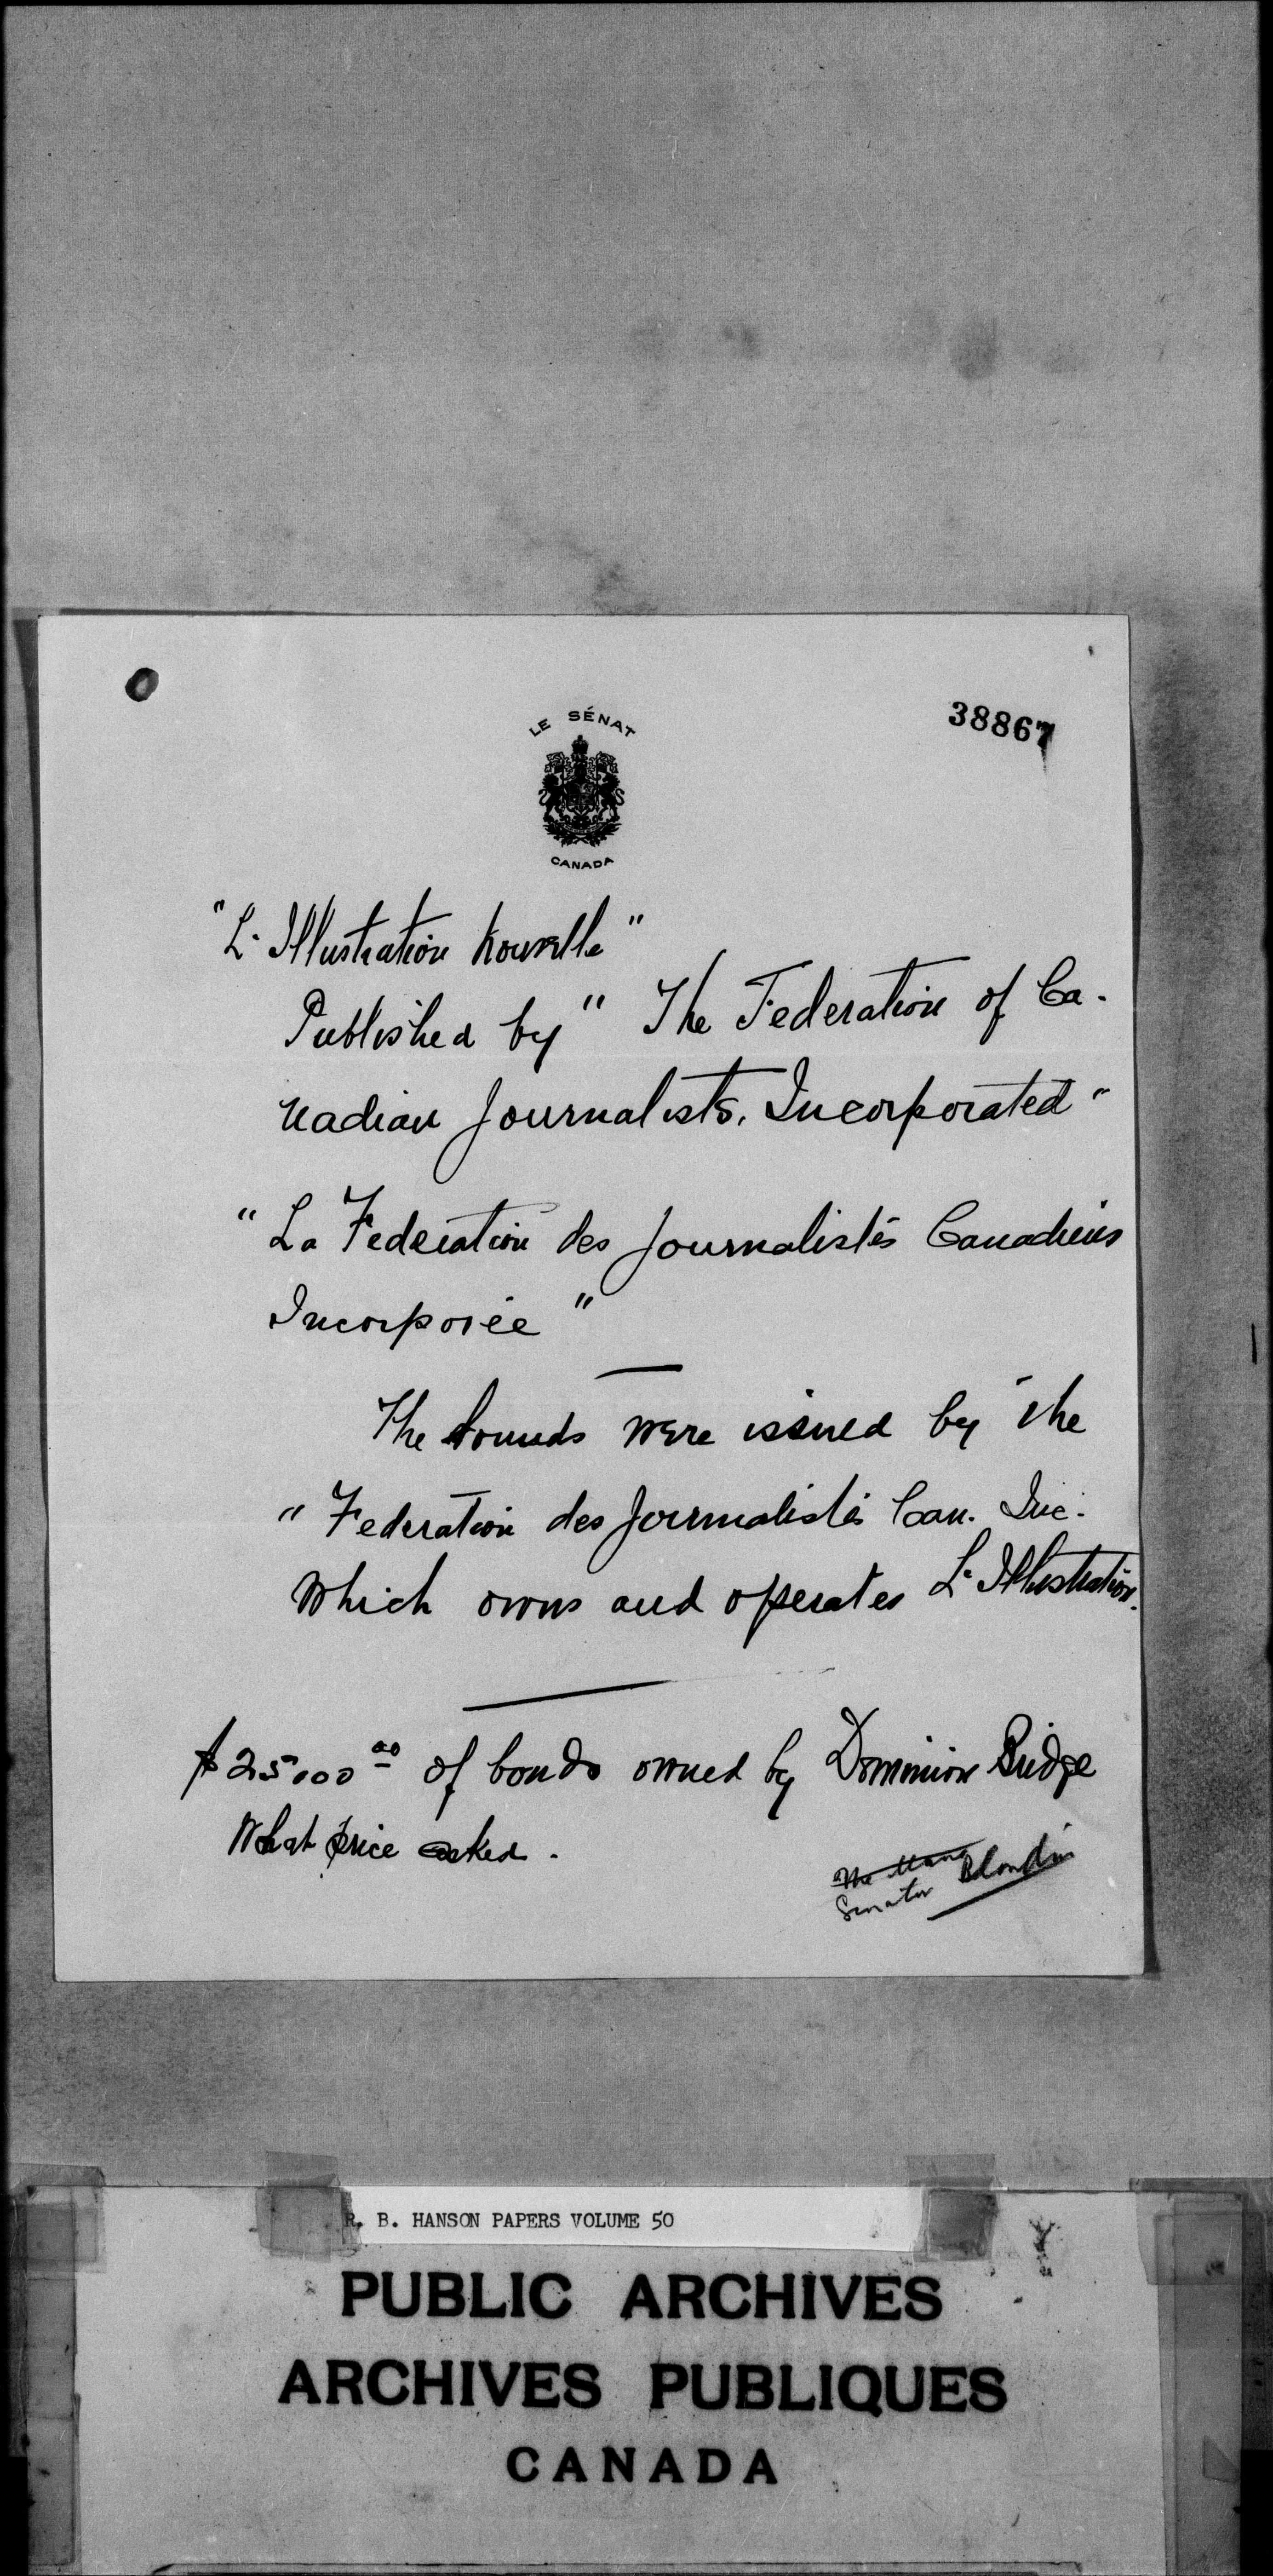 LE SÉNAT
CANADA
38867
"L'Illustration Nouvelle"
Published by "The Federation of Ca-
nadian Journalists. Incorporated"
"La Federation des Journalistes Canadiens
Incorporée"
The bounds were issued by the
"Federation des Journalistes Can. Inc.
which owns and operates L'Illustration.
$25000 00 of bonds owned by Dominion Bridge
What price asked.
Senator Blondin
R. B. HANSON PAPERS VOLUME 50
PUBLIC ARCHIVES
ARCHIVES PUBLIQUES
CANADA